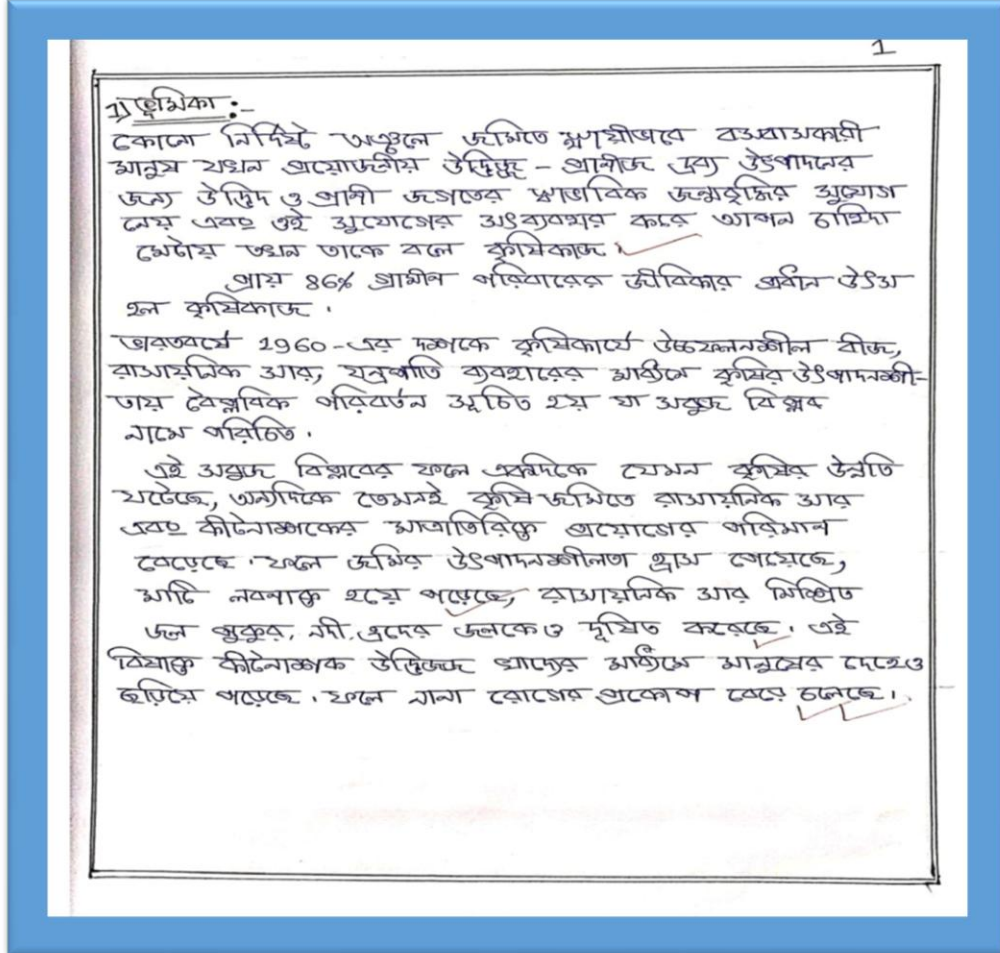 1
1) ভূমিকা :-
কোনো নির্দিষ্ট অঞ্চলে জমিতে স্থায়ীভাবে বসবাসকারী
মানুষ যখন প্রয়োজনীয় উদ্ভিজ্জ - প্রাণীজ দ্রব্য উৎপাদনের
জন্য উদ্ভিদ ও প্রাণী জগতের স্বাভাবিক জন্মবৃদ্ধির সুযোগ
নেয় এবং ওই সুযোগের সৎব্যবহার করে আপন চাহিদা
মেটায় তখন তাকে বলে কৃষিকাজ।
প্রায় 86% গ্রামীন পরিবারের জীবিকার প্রধান উৎস
হল কৃষিকাজ।
ভারতবর্ষে 1960-এর দশকে কৃষিকার্যে উচ্চফলনশীল বীজ,
রাসায়নিক সার, যন্ত্রপাতি ব্যবহারের মাধ্যমে কৃষির উৎপাদনশী-
তায় বৈপ্লবিক পরিবর্তন সূচিত হয় যা সবুজ বিপ্লব
নামে পরিচিত।
এই সবুজ বিপ্লবের ফলে একদিকে যেমন কৃষির উন্নতি
ঘটেছে, অন্যদিকে তেমনই কৃষি জমিতে রাসায়নিক সার
এবং কীটনাশকের মাত্রাতিরিক্ত প্রয়োগের পরিমাণ
বেড়েছে। ফলে জমির উৎপাদনশীলতা হ্রাস পেয়েছে,
মাটি লবণাক্ত হয়ে পড়েছে, রাসায়নিক সার মিশ্রিত
জল পুকুর, নদী, হ্রদের জলকেও দূষিত করেছে। এই
বিষাক্ত কীটনাশক উদ্ভিজ্জ খাদ্যের মাধ্যমে মানুষের দেহেও
ছড়িয়ে পড়েছে। ফলে নানা রোগের প্রকোপ বেরে চলেছে।